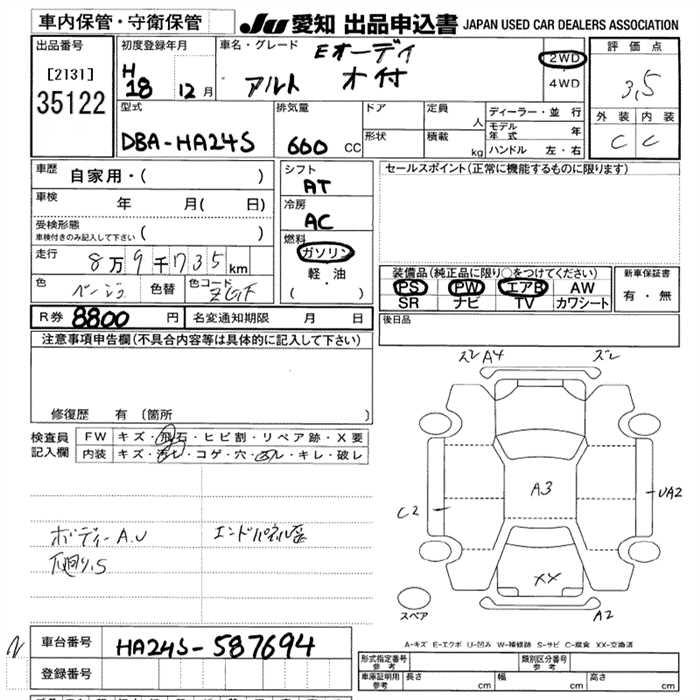 車内保管・守衛保管
JU 愛知 出品申込書 JAPAN USED CAR DEALERS ASSOCIATION
出品番号
[2131]
35122
初度登録年月
H
18 12月
車名・グレード
Eオーディ
アルト オ付
2WD
・
4WD
評価点
3,5
外装 内装
C C
型式
DBA-HA24S
排気量
660 CC
ドア
形状
定員
人
積載
kg
ディーラー・並行
モデル
年式 年
ハンドル 左・右
車歴
自家用・( )
車検
年 月( 日)
受検形態
車検付きのみ記入して下さい ( )
走行
8万9千735km
色
ベージュ
色替
色コード
シフト
AT
冷房
AC
燃料
ガソリン
軽油
( ・ )
セールスポイント(正常に機能するものに限ります)
装備品(純正品に限り○をつけてください)
PS PW エアB AW
SR ナビ TV カワシート
新車保証書
有・無
R券 8800 円
名変通知期限 月 日
後日品
注意事項申告欄(不具合内容等は具体的に記入して下さい)
修復歴 有 〔箇所 〕
検査員
記入欄
FW キズ・飛石・ヒビ割・リペア跡・X要
内装 キズ・汚レ・コゲ・穴・スレ・キレ・破レ
ズレ A4 ズレ
A3
UA2
C2
XX
A2
スペア
ボディーA.U
エンドパネル歪
下廻りS
A-キズ E-エクボ U-凹み W-補修跡 S-サビ C-腐食 XX-交換済
車台番号
HA24S-587694
登録番号
形式指定番号
参考
類別区分番号
参考
車庫証明用
参考
長さ cm
幅 cm
高さ cm